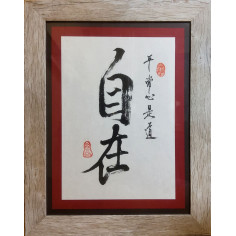 平常心是道
自在